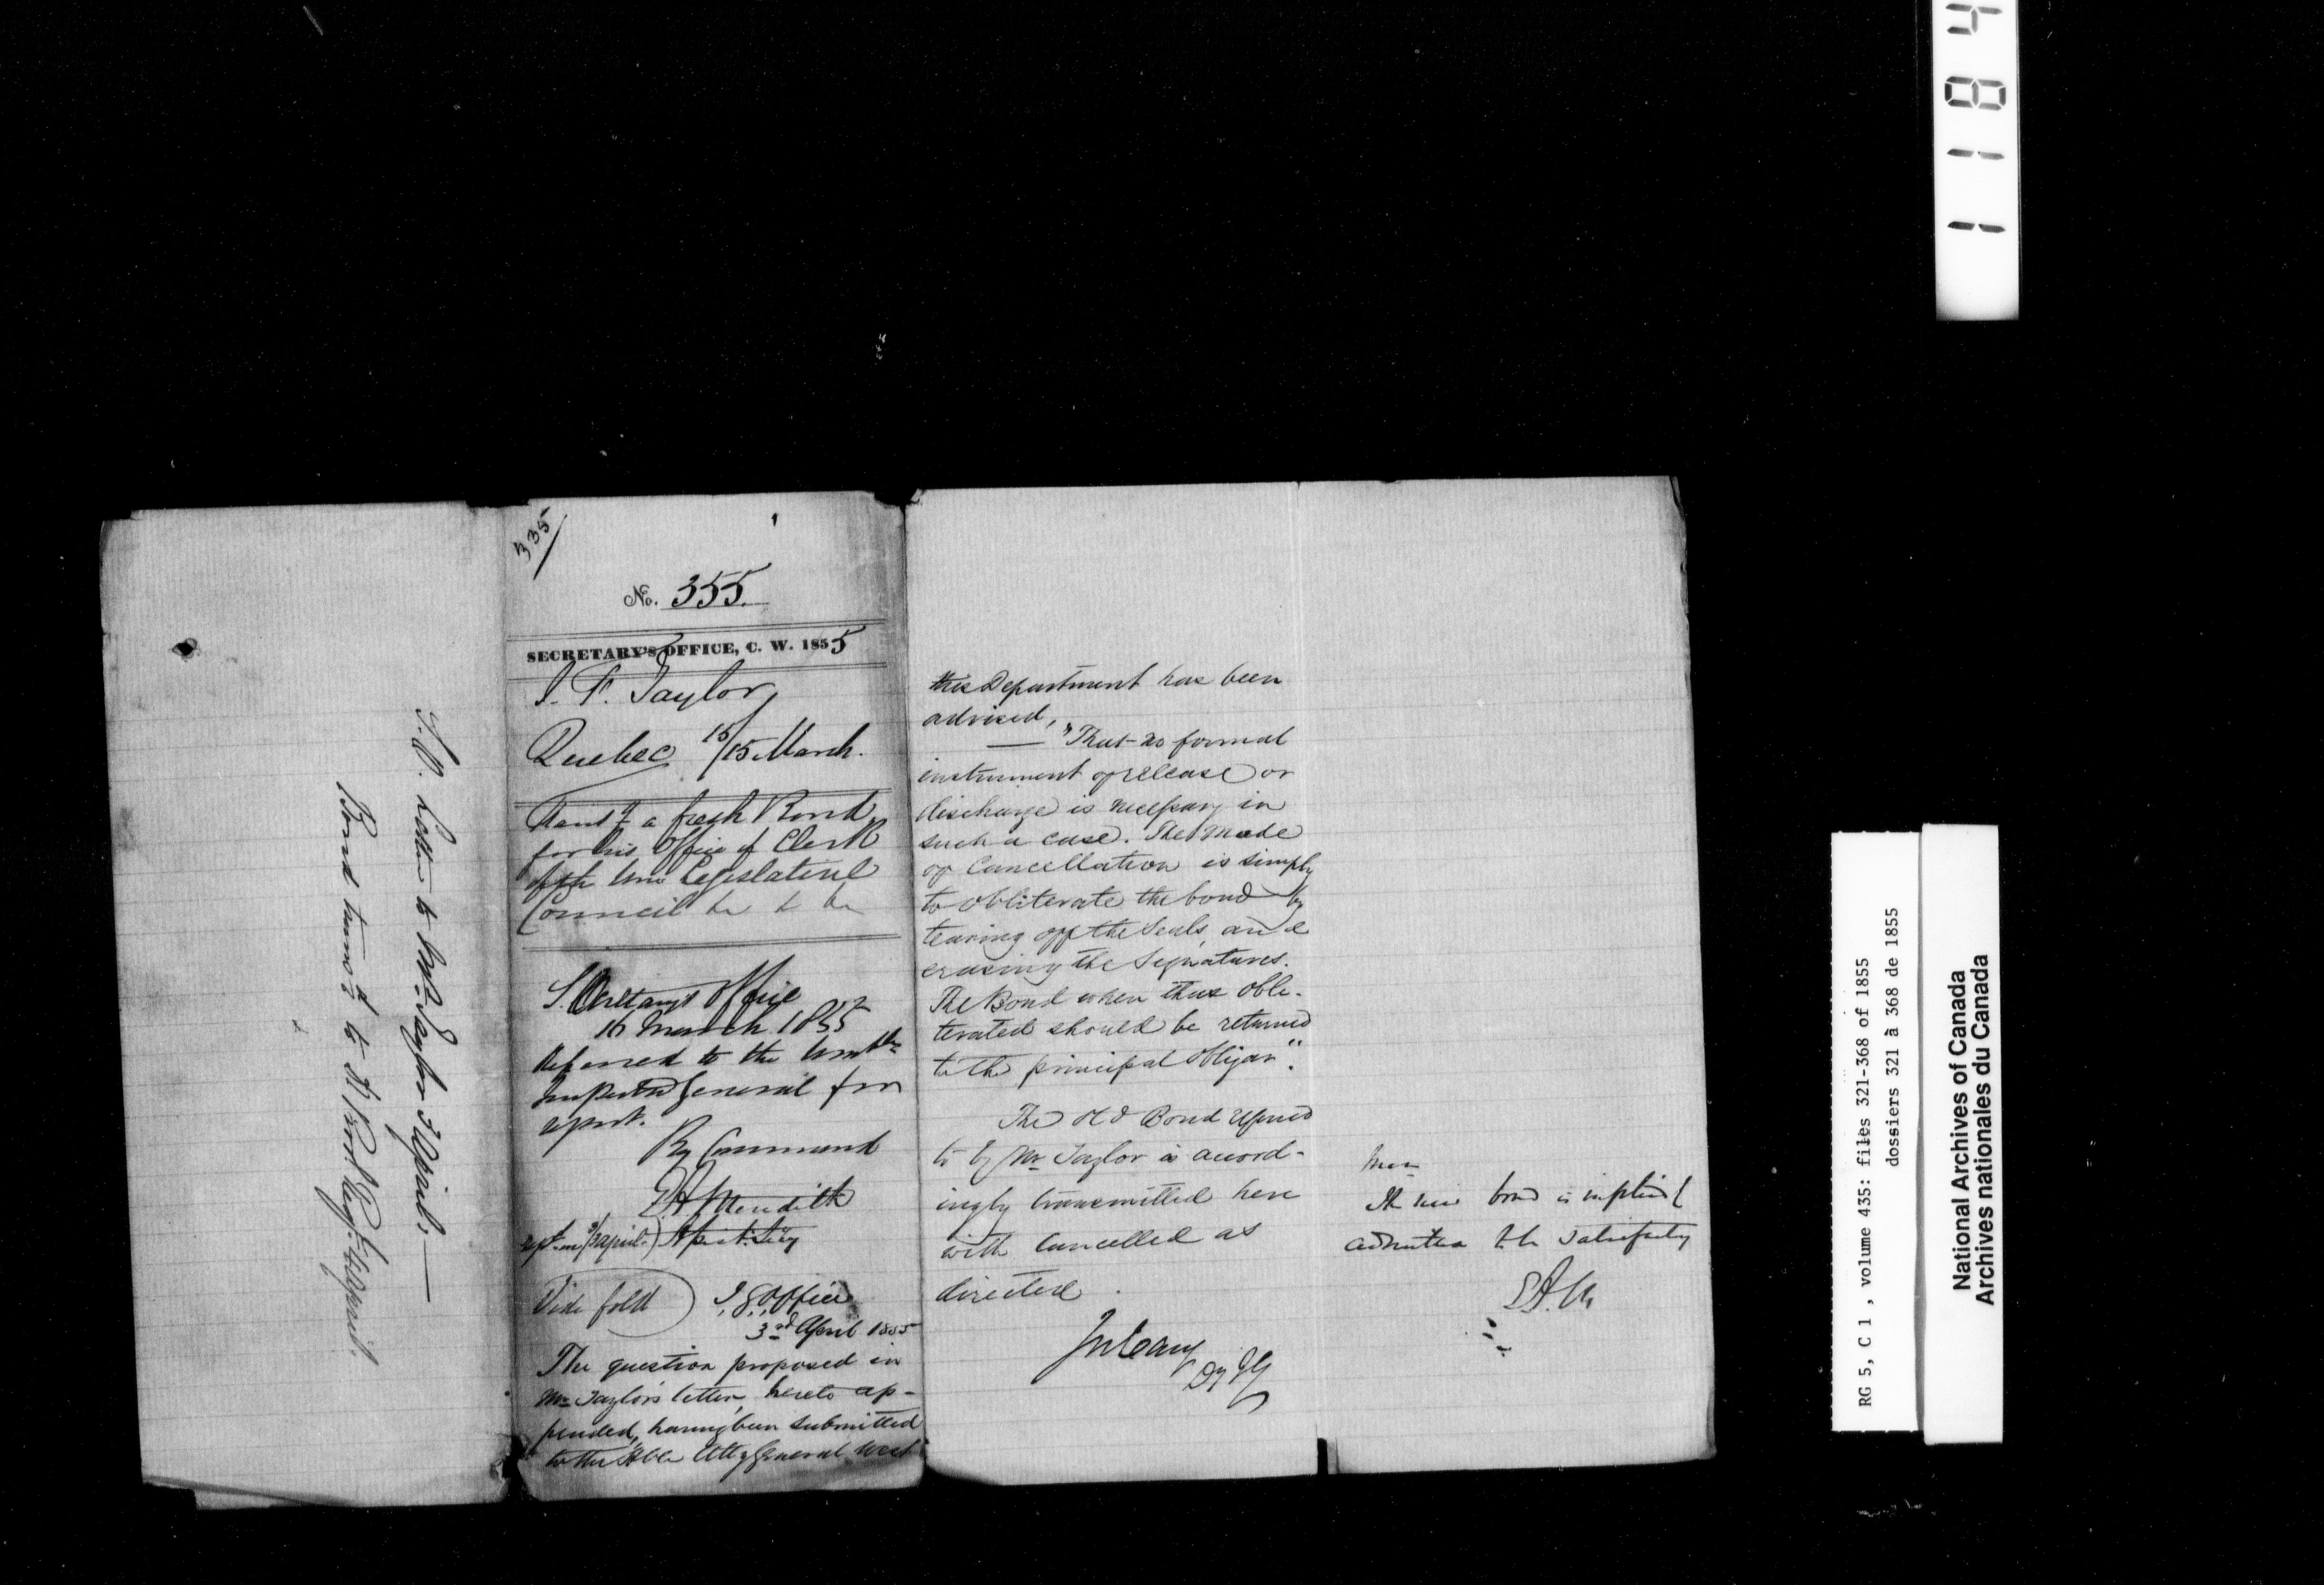 335
No. 355.
SECRETARY'S OFFICE, C. W. 1855
J. F. Taylor,
Quebec 15/15 March.
Transg a fresh Bond
for his Office of Clerk
of the Legislative
Council
S. Office
16 March 1855
Referred to the Honble
Inspector General for
report.
By Command
E A Meredith
Asst. Secy
Vide fold
I. G. Office
3rd April 1855
The question proposed in
Mr Taylor's letter, hereto ap-
pended, having been submitted
to the Hble Atty General West
this Department has been
advised,
— "That no formal
instrument of release or
discharge is necessary in
such a case. The mode
of Cancellation is simply
to obliterate the bond by
tearing off the Seals, and
erasing the Signatures.
The Bond when thus obli-
terated should be returned
to the principal Obligor".
The old Bond referred
to by Mr Taylor is accord-
ingly transmitted here
with Cancelled as
directed.
Jn Cary
Dy I G
Mem
The new bond is
satisfactory
E A M
Letter to Mr Taylor 3 April. —
Bond transmd to April.
1184
RG 5, C 1 , volume 435: files 321-368 of 1855
dossiers 321 à 368 de 1855
National Archives of Canada
Archives nationales du Canada